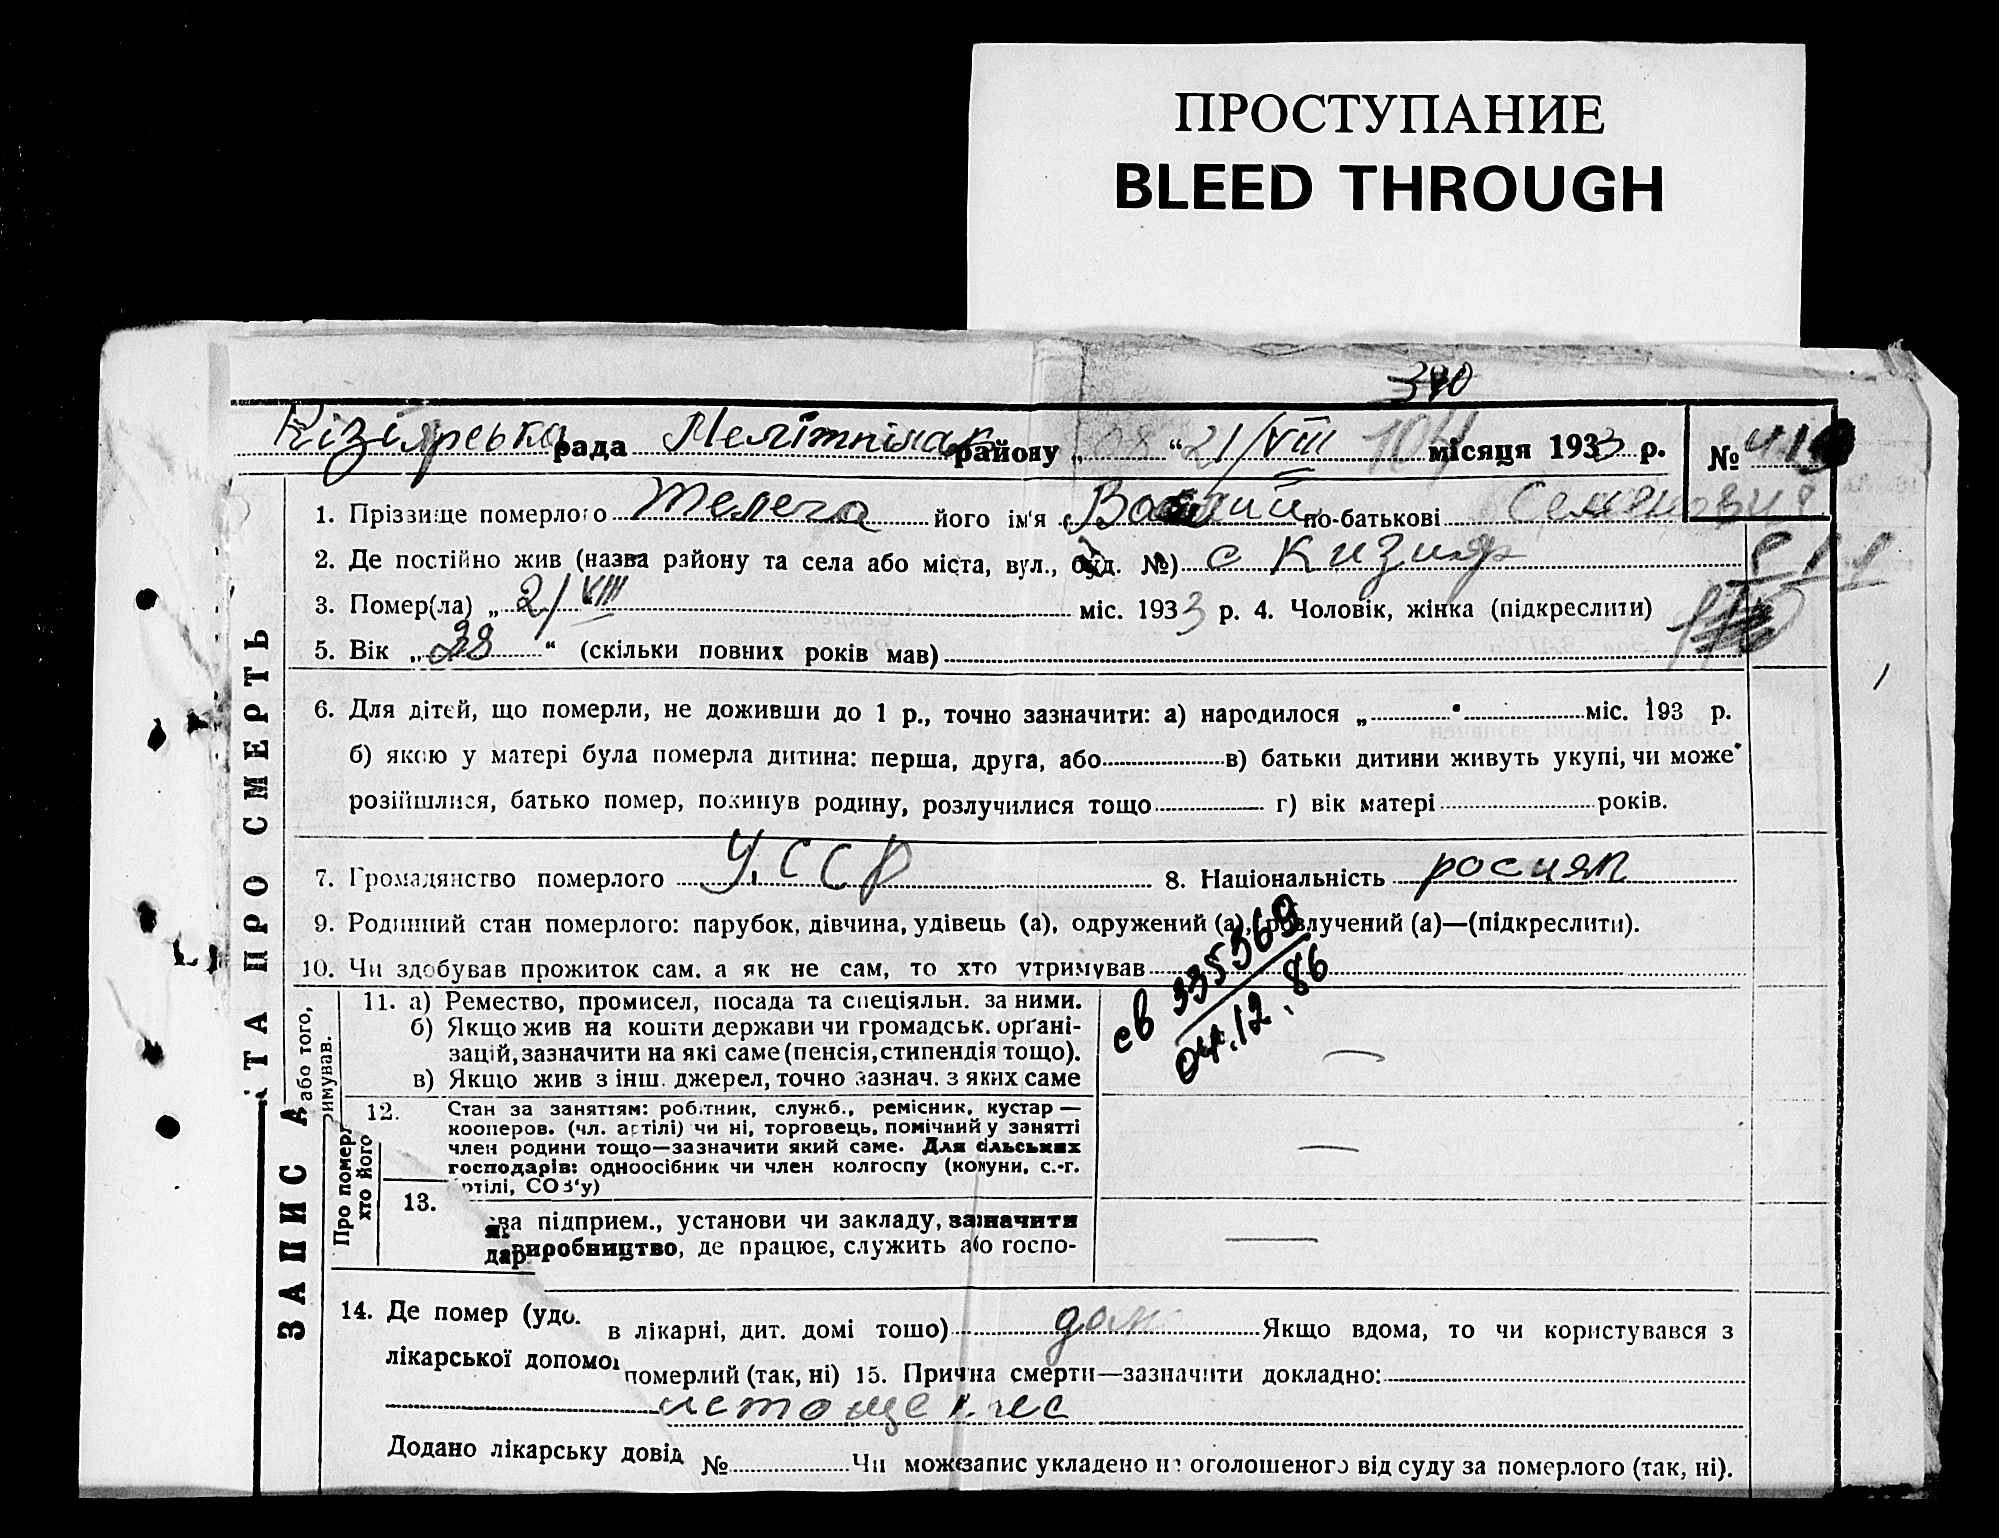 ПРОСТУПАНИЕ
BLEED THROUGH
Кізіярська рада районy „ 21/VIII 104 місяця 1933 р. №
1. Прізвище померлого Телега його ім'я по-батькові Семенович
2. Де постійно жив (назва району та села або міста, вул., буд. №) с Кизияр
3. Помер(ла) „ 21/VIII міс. 1933 р. 4. Чоловік, жінка (підкреслити)
5. Вік „ 38 “ (скільки повних років мав)
6. Для дітей, що померли, не доживши до 1 р., точно зазначити: а) народилося „ “ міс. 193 р.
б) якою у матері була померла дитина: перша, друга, або в) батьки дитини живуть укупі, чи може
розійшлися, батько помер, покинув родину, розлучилися тощо г) вік матері років.
7. Громадянство померлого УССР 8. Національність росиян
9. Родинний стан померлого: парубок, дівчина, удівець (а), одружений (а), розлучений (а)—(підкреслити).
10. Чи здобував прожиток сам, а як не сам, то хто утримував
св 335369
04.12.86
11. а) Ремество, промисел, посада та спеціяльн. за ними.
б) Якщо жив на кошти держави чи громадськ. орґані-
зацій, зазначити на які саме (пенсія, стипендія тощо).
в) Якщо жив з інш. джерел, точно зазнач. з яких саме
12. Стан за заняттям: робітник, служб., ремісник, кустар —
кооперов. (чл. артілі) чи ні, торговець, помічний у занятті
член родини тощо—зазначити який саме. Для сільських
господарів: одноосібник чи член колгоспу (комуни, с.-г.
ртілі, СОЗ'у)
13. ва підприєм., установи чи закладу, зазначити
виробництво, де працює, служить або госпо-
дар
14. Де помер (удо. в лікарні, дит. домі тощо) дом Якщо вдома, то чи користувався з
лікарської допомо померлий (так, ні) 15. Причина смерти—зазначити докладно:
истощение
Додано лікарську довід № Чи може запис укладено на оголошеного від суду за померлого (так, ні).
ЗАПИС А ТА ПРО СМЕРТЬ
Про помер або того,
хто його римував.